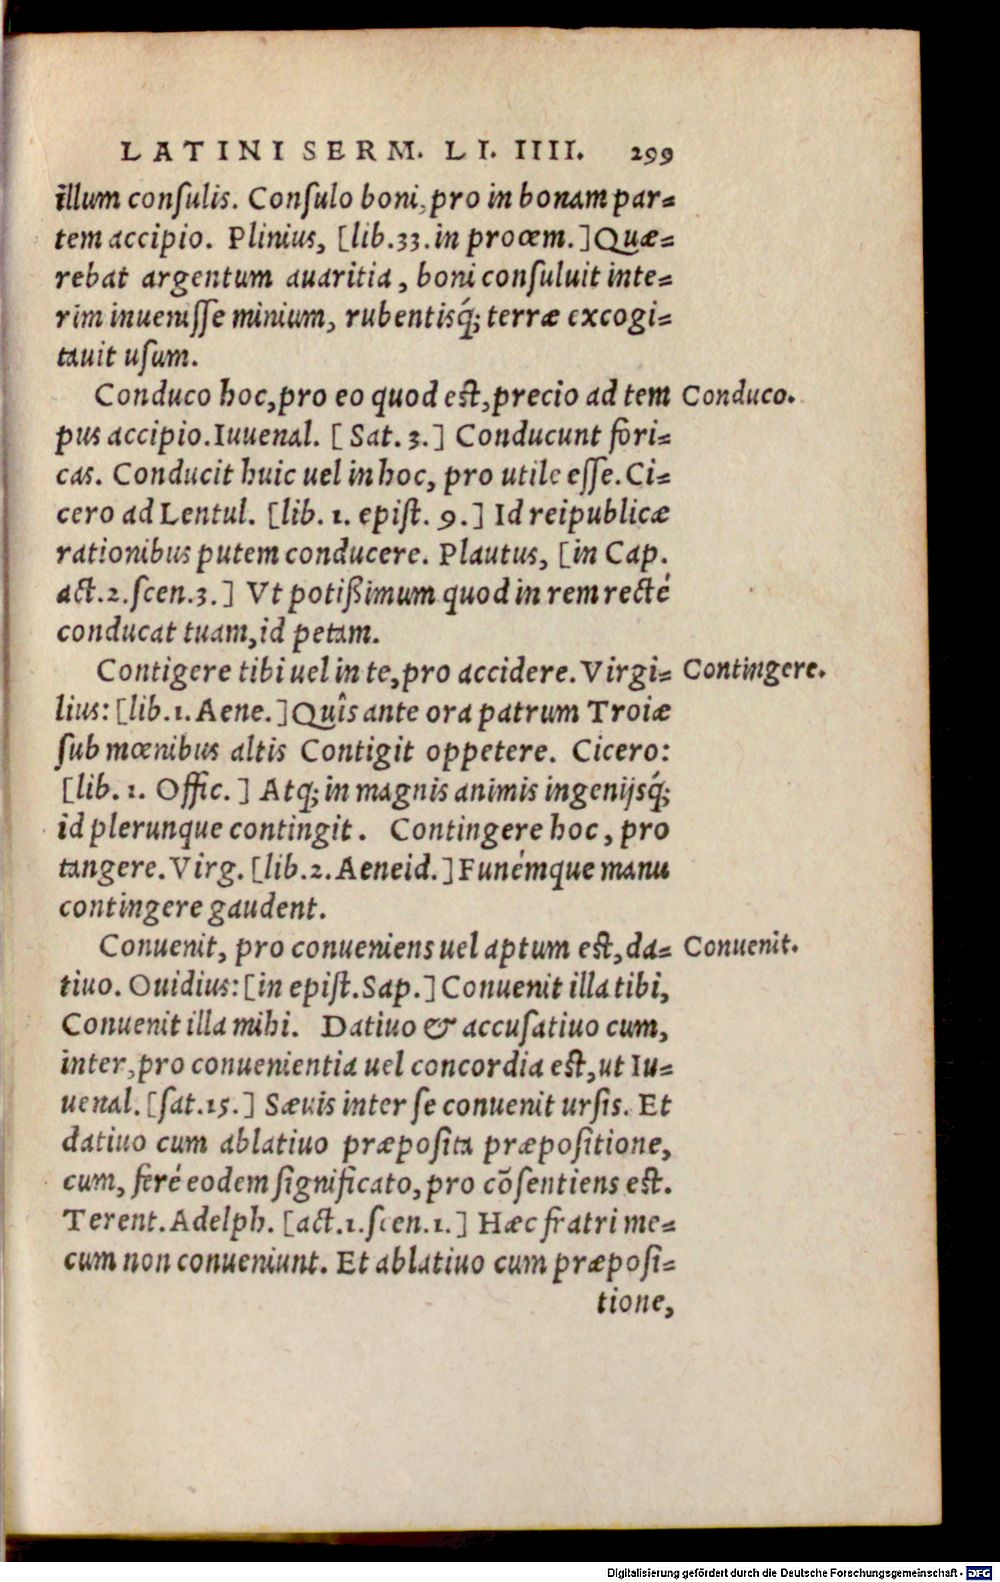 LATINI SERM. LI. IIII. 299
illum conſulis. Conſulo boni, pro in bonam par⸗
tem accipio. Plinius, [lib.33.in proœm.] Quæ⸗
rebat argentum auaritia, boni conſuluit inte⸗
rim inueniſſe minium, rubentisq́; terræ excogi⸗
tauit uſum.
Conduco hoc, pro eo quod est, precio ad tem Conduco.
pus accipio. Iuuenal. [Sat. 3.] Conducunt fori⸗
cas. Conducit huic uel in hoc, pro utile eſſe. Ci⸗
cero ad Lentul. [lib. 1. epiſt. 9.] Id reipublicæ
rationibus putem conducere. Plautus, [in Cap.
act.2.ſcen.3.] Vt potißimum quod in rem recté
conducat tuam, id petam.
Contigere tibi uel in te, pro accidere. Virgi⸗ Contingere.
lius: [lib.1.Aene.] Quîs ante ora patrum Troiæ
ſub mœnibus altis Contigit oppetere. Cicero:
[lib. 1. Offic.] Atq; in magnis animis ingenijsq́;
id plerunque contingit. Contingere hoc, pro
tangere. Virg. [lib.2.Aeneid.] Funémque manu
contingere gaudent.
Conuenit, pro conueniens uel aptum est, da⸗ Conuenit.
tiuo. Ouidius: [in epiſt. Sap.] Conuenit illa tibi,
Conuenit illa mihi. Datiuo & accuſatiuo cum,
inter, pro conuenientia uel concordia est, ut Iu⸗
uenal. [ſat.15.] Sæuis inter ſe conuenit urſis. Et
datiuo cum ablatiuo præpoſita præpoſitione,
cum, feré eodem ſignificato, pro cõſentiens est.
Terent. Adelph. [act.1.ſcen.1.] Hæc fratri me⸗
cum non conueniunt. Et ablatiuo cum præpoſi⸗
tione,
Digitalisierung gefördert durch die Deutsche Forschungsgemeinschaft - DFG